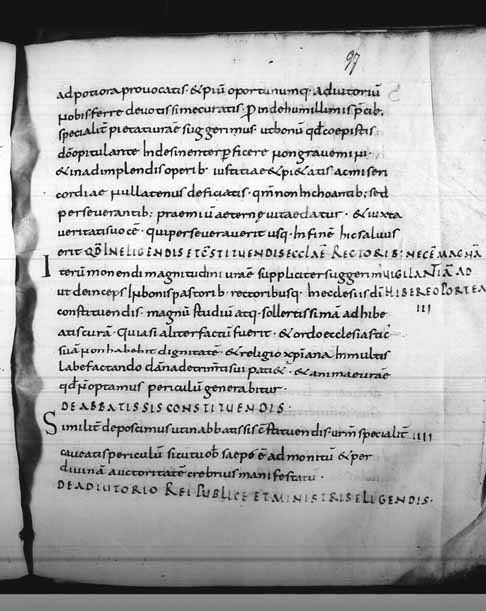 97
ad potiora provocatis · & piū oportunūq· adiutoriū
vobis ferre devotissime curatis · ꝓinde humillimis p̄cib·
specialit̄ pietati urae suggerimus · ut bonū qđ coepistis
dō opitulante indesinenter ꝑficere non gravemini ·
& in adimplendis operib· iustitiae & pi&atis ac miseri
cordiae nullatenus deficiatis · qm̄ non inchoantib; sed
perseverantib; praemiū aeternę vitae datur · & iuxta
veritatis vocē · qui perseveraverit usq· in finē hic salvus
erit · QĐ IN ELIGENDIS ET CŌSTITUENDIS ECCLAE RECTORIB; NECĒ MAGNĀ
Iterū monendi magnitudini urae suppliciter suggerim VIGILANTIĀ AD
ut deinceps in bonis pastorib· rectoribusq· in ecclesiis dī HIBERE OPORTEA
constituendis · magnū studiū atq· sollertissimā adhibe III
atis curā · Quia si aliter factū fuerit · & ordo ecclesiastic
suā non habebit dignitatē · & religio xp̄iana in multis
labefactando dāna detrim̄ti sui pati& · & animae urae
qđ n̄ optamus periculū generabitur ·
DE ABBATISSIS CONSTITUENDIS ·
Similit̄ deposcimus ut in abbatissis cōstituendis urm̄ specialit̄ IIII
caveatis periculū sicut vob̄ saepe ē admonitū & per
divinā auctoritatē crebrius manifestatū ·
DE ADIUTORIO REI PUBLICE ET MINISTRIS ELIGENDIS ·